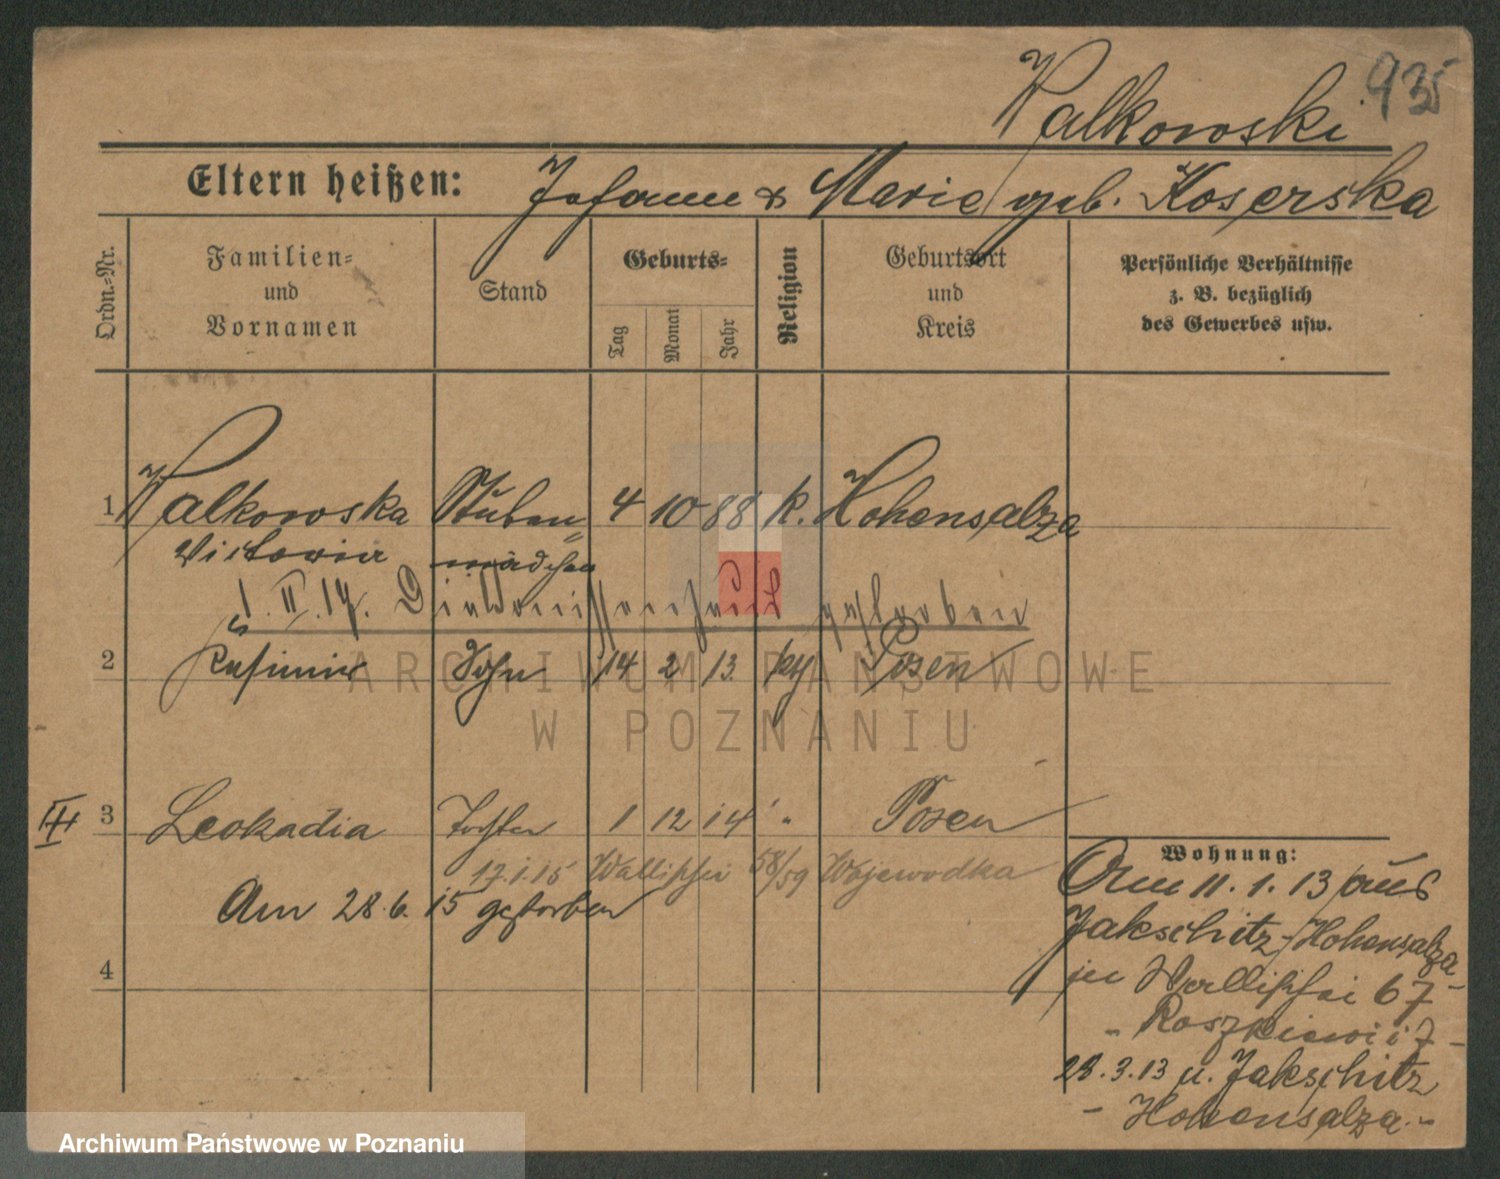 935
Walkowski
Eltern heißen: Johann & Marie geb. Koserska
Ordn.-Nr.
Familien-
und
Vornamen
Stand
Geburts-
Tag
Monat
Jahr
Religion
Geburtsort
und
Kreis
Persönliche Verhältnisse
z. B. bezüglich
des Gewerbes usw.
1 Walkowska Stuben= 4 10 88 k. Hohensalza
Victoria mädchen
1. II. 17. Diakonissenhaus gestorben
2 Kasimir Sohn 14 2 13. kg Posen
ARCHIWUM PAŃSTWOWE
W POZNANIU
III 3 Leokadia Tochter 1 12 14 " Posen
17.1.15 Wallischei 58/59 Wojewodka
Am 28.6.15 gestorben
4
Wohnung:
Am 11.1.13 aus
Jakschitz Hohensalza
zu Wallischei 67
28.3.13 n. Jakschitz
- Hohensalza -
Archiwum Państwowe w Poznaniu